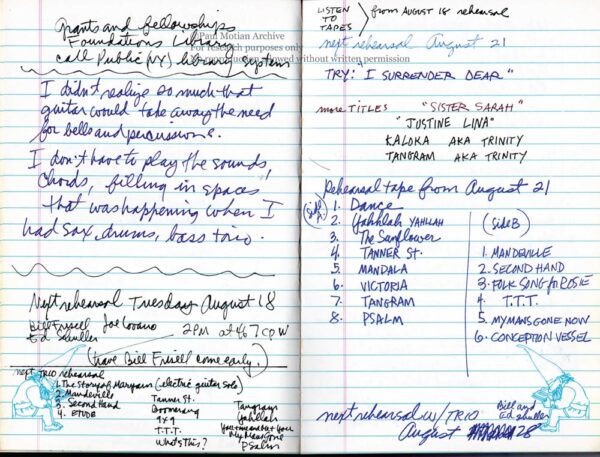 Grants and fellowships
Foundations Library
call Public (NY) library system
© Paul Motian Archive
For research purposes only
No reproduction allowed without written permission
I didn't realize so much that
guitar would take away the need
for bells and percussions.
I don't have to play the sounds,
chords, filling in spaces
that was happening when I
had sax, drums, bass trio.
Next rehearsal Tuesday August 18
Bill Frisell Joe Lovano
Ed Schuller
2PM at 467 CPW
(have Bill Frisell come early.)
next TRIO rehearsal
1. The Story of Maryam (electric guitar solo)
2. Mandeville
3. Second Hand
4. ETUDE
Tanner St.
Boomerang
9x9
T.T.T.
Who's this?
Tangram
Yahllah
You
My Mans Gone
Psalm
LISTEN
TO
TAPES
from AUGUST 18 rehearsal
next rehearsal August 21
TRY: "I SURRENDER DEAR"
more TITLES "SISTER SARAH"
"JUSTINE LINA"
KALOKA AKA TRINITY
TANGRAM AKA TRINITY
Rehearsal tape from August 21
Side A
1. Dance
2. Yahhlah YAHLLAH
3. The Sunflower
4. TANNER ST.
5. MANDALA
6. VICTORIA
7. TANGRAM
8. PSALM
Side B
1. MANDEVILLE
2. SECOND HAND
3. FOLK SONG for ROSIE
4. T.T.T.
5. MY MANS GONE NOW
6. CONCEPTION VESSEL
next rehearsal w/ TRIO
Bill and
Ed Schuller
August 28